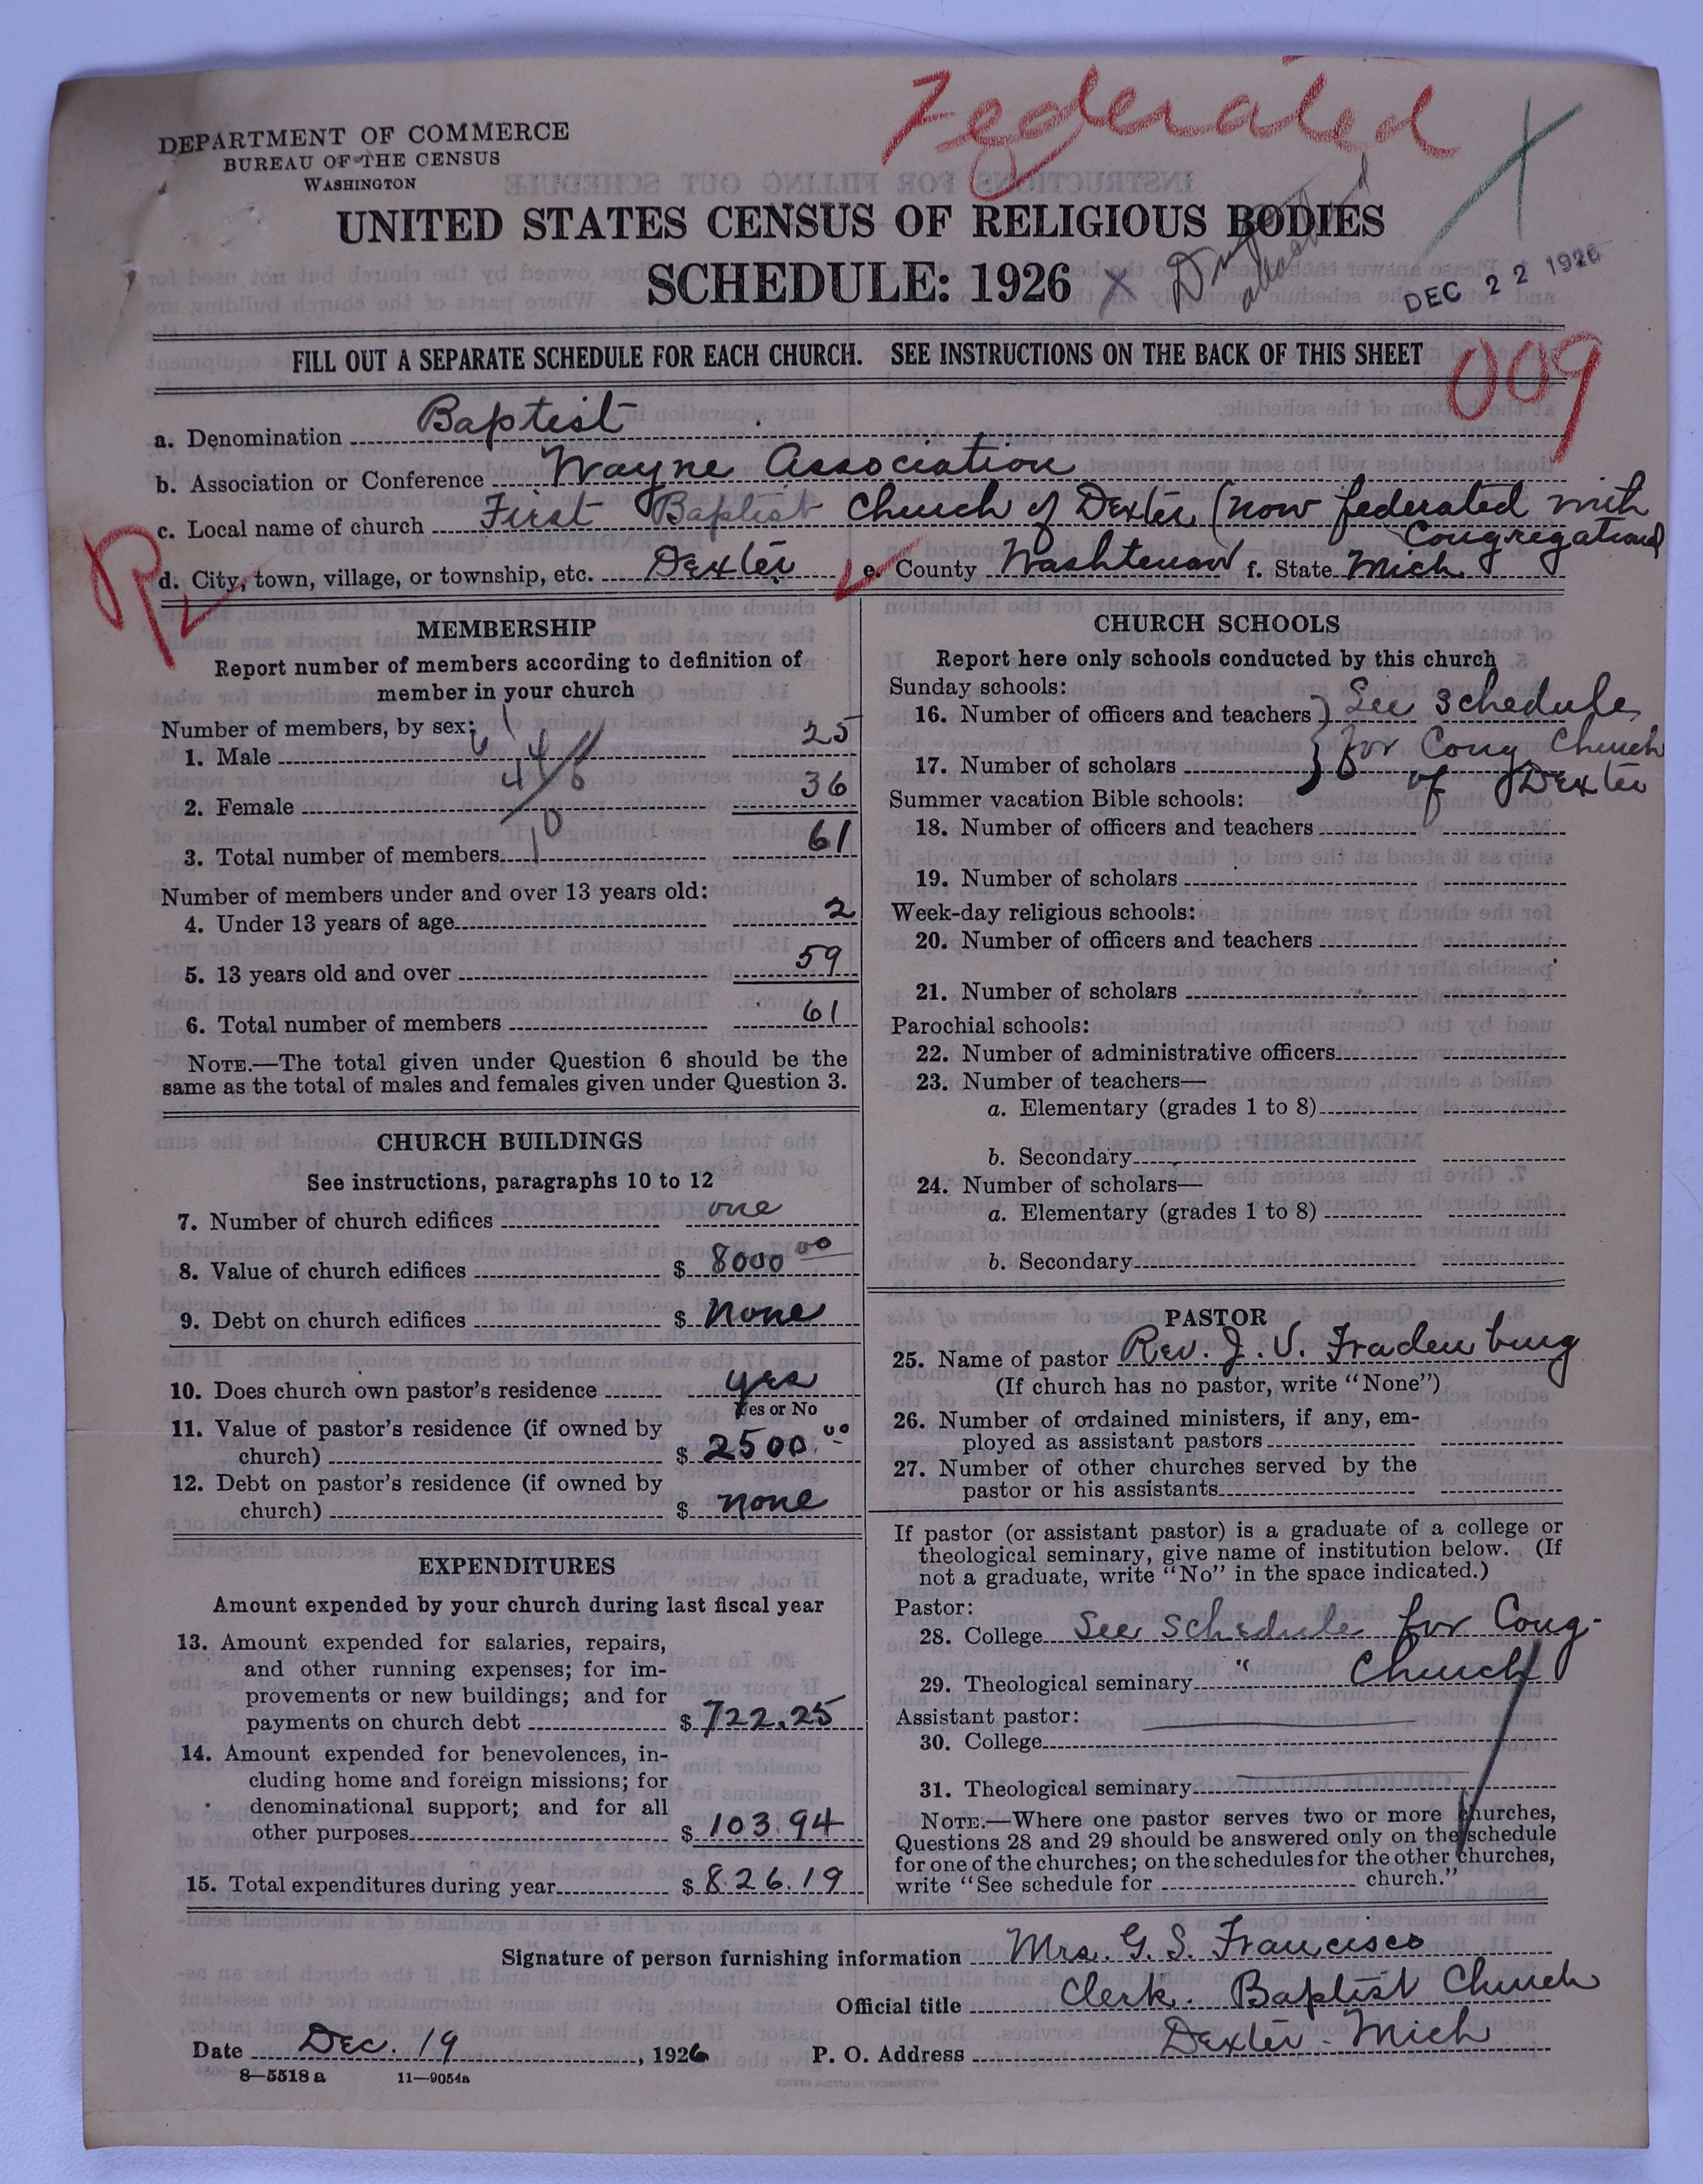 Federated
DEPARTMENT OF COMMERCE
BUREAU OF THE CENSUS
WASHINGTON
UNITED STATES CENSUS OF RELIGIOUS BODIES
SCHEDULE: 1926 X
DEC 22 1926
FILL OUT A SEPARATE SCHEDULE FOR EACH CHURCH. SEE INSTRUCTIONS ON THE BACK OF THIS SHEET
009
a. Denomination Baptist
b. Association or Conference Wayne Association
c. Local name of church First Baptist Church of Dexter (now federated with
Congregational
d. City, town, village, or township, etc. Dexter e. County Washtenaw f. State Mich.
R
MEMBERSHIP
Report number of members according to definition of
member in your church
Number of members, by sex:
1. Male 25
2. Female 36
3. Total number of members 61
Number of members under and over 13 years old:
4. Under 13 years of age 2
5. 13 years old and over 59
6. Total number of members 61
NOTE.—The total given under Question 6 should be the
same as the total of males and females given under Question 3.
CHURCH BUILDINGS
See instructions, paragraphs 10 to 12
7. Number of church edifices one
8. Value of church edifices $ 8000 00
9. Debt on church edifices $ None
10. Does church own pastor's residence yes
Yes or No
11. Value of pastor's residence (if owned by
church) $ 2500.00
12. Debt on pastor's residence (if owned by
church) $ none
EXPENDITURES
Amount expended by your church during last fiscal year
13. Amount expended for salaries, repairs,
and other running expenses; for im-
provements or new buildings; and for
payments on church debt $ 722.25
14. Amount expended for benevolences, in-
cluding home and foreign missions; for
denominational support; and for all
other purposes $ 103.94
15. Total expenditures during year $ 826.19
CHURCH SCHOOLS
Report here only schools conducted by this church
Sunday schools:
16. Number of officers and teachers } See schedule
17. Number of scholars } for Cong Church
of Dexter
Summer vacation Bible schools:
18. Number of officers and teachers
19. Number of scholars
Week-day religious schools:
20. Number of officers and teachers
21. Number of scholars
Parochial schools:
22. Number of administrative officers
23. Number of teachers—
a. Elementary (grades 1 to 8)
b. Secondary
24. Number of scholars—
a. Elementary (grades 1 to 8)
b. Secondary
PASTOR
25. Name of pastor Rev. J. V. Fradenburg
(If church has no pastor, write "None")
26. Number of ordained ministers, if any, em-
ployed as assistant pastors
27. Number of other churches served by the
pastor or his assistants
If pastor (or assistant pastor) is a graduate of a college or
theological seminary, give name of institution below. (If
not a graduate, write "No" in the space indicated.)
Pastor:
28. College See schedule for Cong.
29. Theological seminary " Church
Assistant pastor:
30. College
31. Theological seminary
NOTE.—Where one pastor serves two or more churches,
Questions 28 and 29 should be answered only on the schedule
for one of the churches; on the schedules for the other churches,
write "See schedule for church."
Signature of person furnishing information Mrs. G. S. Francisco
Official title Clerk. Baptist Church
Date Dec. 19, 1926 P. O. Address Dexter Mich
8—5518 a 11—9054a